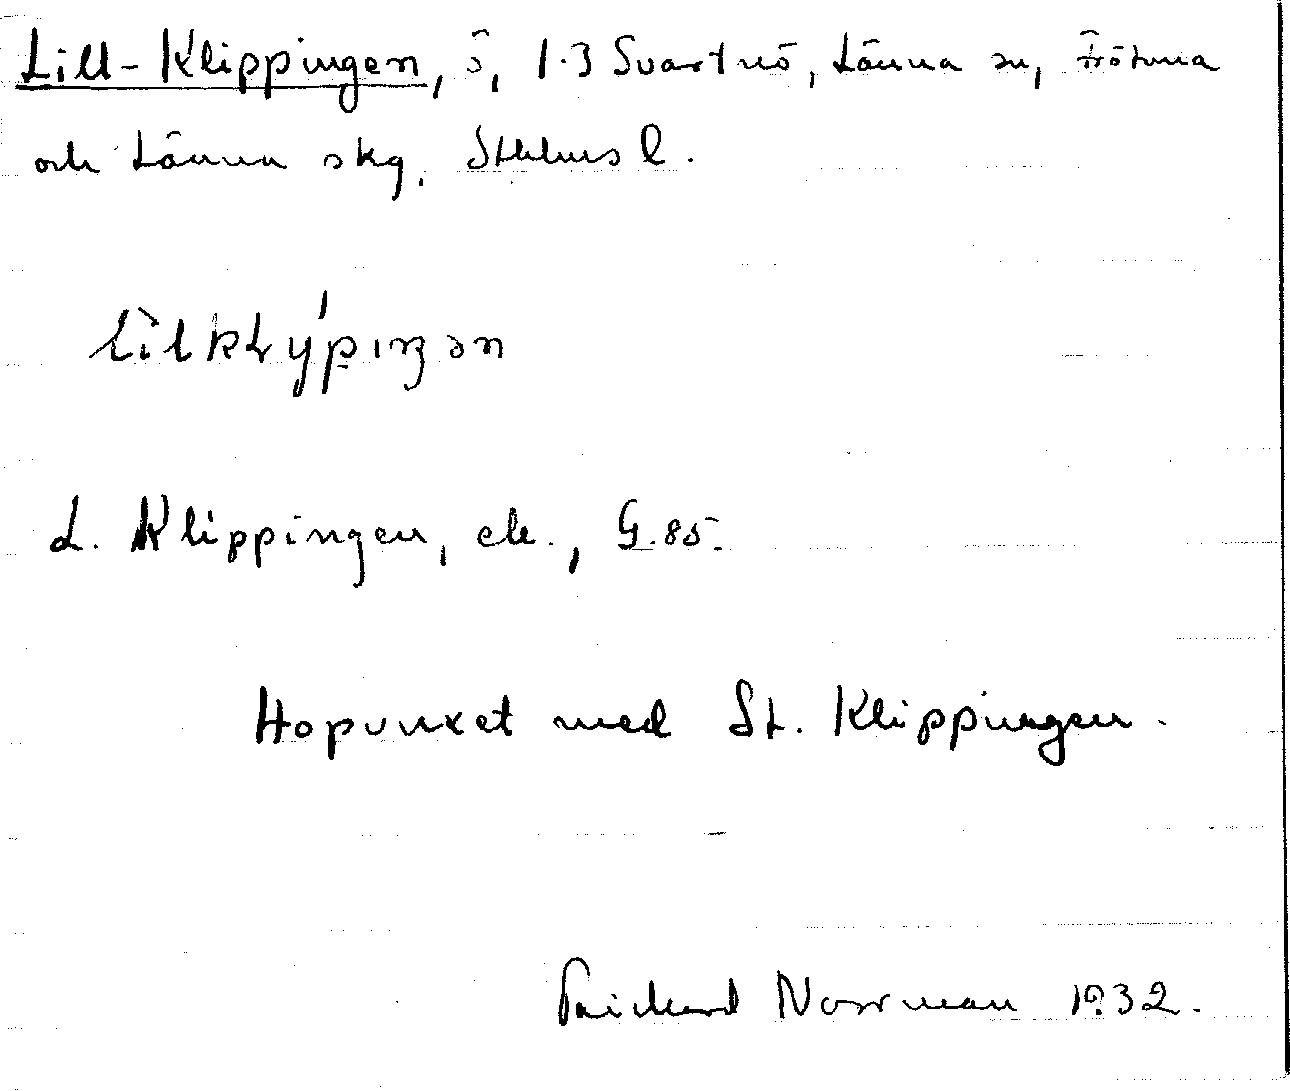 Lill-Klippingen, ö, 1.3 Svartnö, Länna sn, Frötuna
och Länna skg, Sthlms l.
lìlkLy̍piŋən
L. Klippingen, ek., G.85.
Hopvuxet med St. Klippingen.
Rickard Norrman 1932.